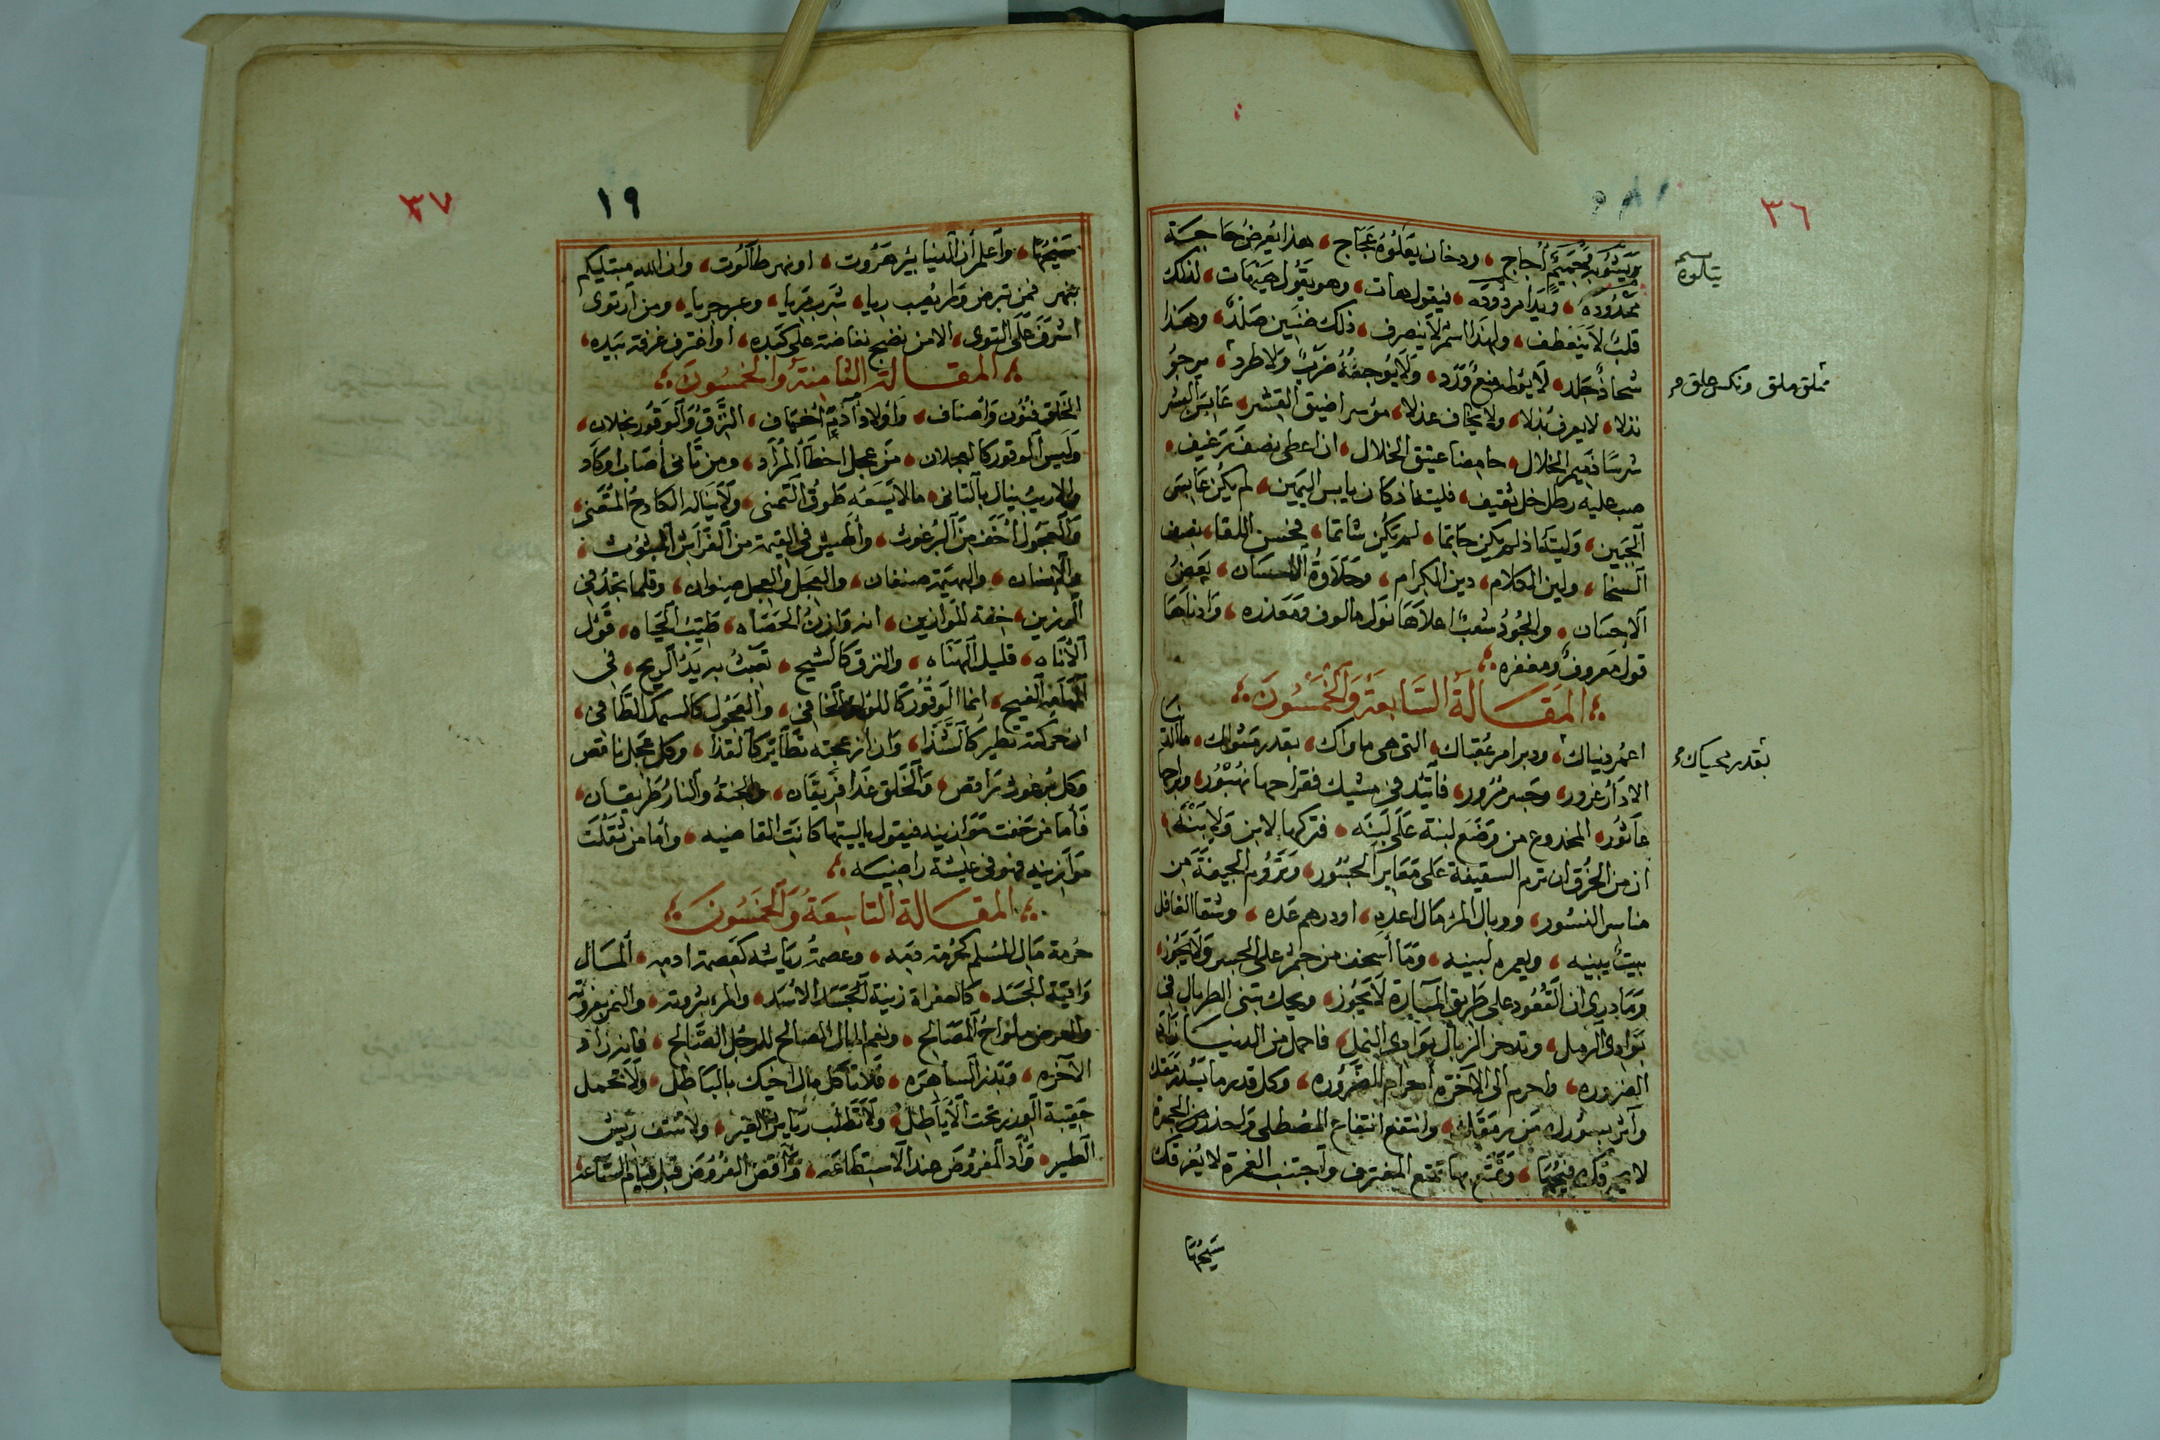 ٣٦
ويشوبه بحميم أجاج ودخان يعلوه عجاج هذا يعرض حاجة
ممدودة ويدا مردوده فيقول هات وهو يقول هيهات لذلك
قلب لا ينعطف ولهذا اسم لا ينصرف ذلك ضنين صلد وهذا
شحاذ جلد لا يوطه منع ورد ولا يوجعه ضرب ولا طرد يرجو
نذلا لا يعرف بذلا ولا يخاف عذلا موسر اضيق القشر عابس البشر
شرسا ذميم الخلال حامضا عتيق الخلال ان اعطى نصف رغيف
صب عليه رطل خل ثقيف فليته اذ كان يابس اليمين لم يكن عابس
الجبين وليته اذ لم يكن حاتما لم يكن شاتما فحسن اللقا نصف
السخا ولين الكلام دين الكرام وحلاوة اللسان بعض
الاحسان والجود شعب اعلاها نول مالون ومعذره وادناها
قول معروف ومغفره
المقالة السابعة والخمسون
اعمر دنياك ودبر امر عقباك التي هي ماواك بقدر مثواك ما الدنيا
الا دار غرور وجسر مرور فاتئد في مشيك فقراحها نهبور وبراحها
عاثور المخدوع من وضع لبنة على لبنه فتركها لابن ولابنه
ان من الخرق ان ترم السقيفة على مقابر الجسور وتروم الجيفة من
مناسر النسور ووبال المرء مال اعده او درهم عده وشقا الغافل
بيت يبنيه ويعمره لبنيه وما أسخف من جمر على الجسر ولا يجوز
وما درى ان القعود على طريق المارة لا يجوز ويحك تبنى الطربال في
بوادى الرمل وتدخر الزبال بوادى النمل فاحمل من الدنيا زاد
الضروره واحرم الى الاخرة احرام الصروره وكل قدر ما يسد رمقك
وآثر بسورك من رمقك وانتفع انتفاع المصطلى واحذر من الجمرة
لا يحرقك فيحها وتمتع بها تمتع المغترف واجتنب الغمرة لا يغرقك
سيحها
يتلوه
تملق ملق ونكس علق
بقدر محياك
٣٧
١٩
سيحها واعلم أن الدنيا بئر هروت او نهر طالوت وان الله مبتليكم
بنهر فمن تبرض ولم يصب ريا شرب مريا وعبر جريا ومن ارتوى
اشرف على التوى الا من نضح نفاضة على كبده او اغترف غرفة بيده
المقالة الثامنة والخمسون
الخلق فنون واصناف واولاد آدم اخياف النزق والوقور نجلان
وليس الوقور كالعجلان من عجل اخطأ المراد ومن تأنى أصاب او كاد
ولا ريب ينال بالتانى ما لا يسعه طوق التمنى ولا يناله الكادح المتعنى
والعجول اخف من البرغوث وأطيش في القيمة من الفراش المبثوث
والانسان والبهيمة صنفان والعجل والعجل صنوان وقلما تجد في
الرزين خفة الموازين انه وازن الحصاه طيب الحياه قؤل
الأناه قليل الهناه والنزق كالشيح تعبث به يد الريح في
المهامه الفيح انما الوقور كاللؤلؤ الخافى والعجول كالسمك الطافى
ان حركته تطير كالشذا وان ازعجته تطاير كالقذا وكل عجل ناقص
وكل برغوث راقص والخلق غدا فريقان والجنة والنار طريقان
فأما من خفت موازينه فيقول ياليتها كانت القاضيه وأما من ثقلت
موازينه فهو في عيشة راضيه
المقالة التاسعة والخمسون
حرمة مال المسلم كحرمة دمه وعصمة رياشه كعصمة ادمه المال
واقية الجسد كالعفراة زينة لجسد الأسد والمرء بثروته والنمر بفروته
والعرض ملواح المصالح ونعم المال الصالح للرجل الصالح فانه زاد
الآخره وبذر الساهره فلا تأكل مال اخيك بالباطل ولا تحمل
حقيبة الوزر تحت الأياطل ولا تطلب رياش الغير ولا تنتف ريش
الطير وأد المفروض عند الاستطاعه واقض القروض قبل قيام الساعه